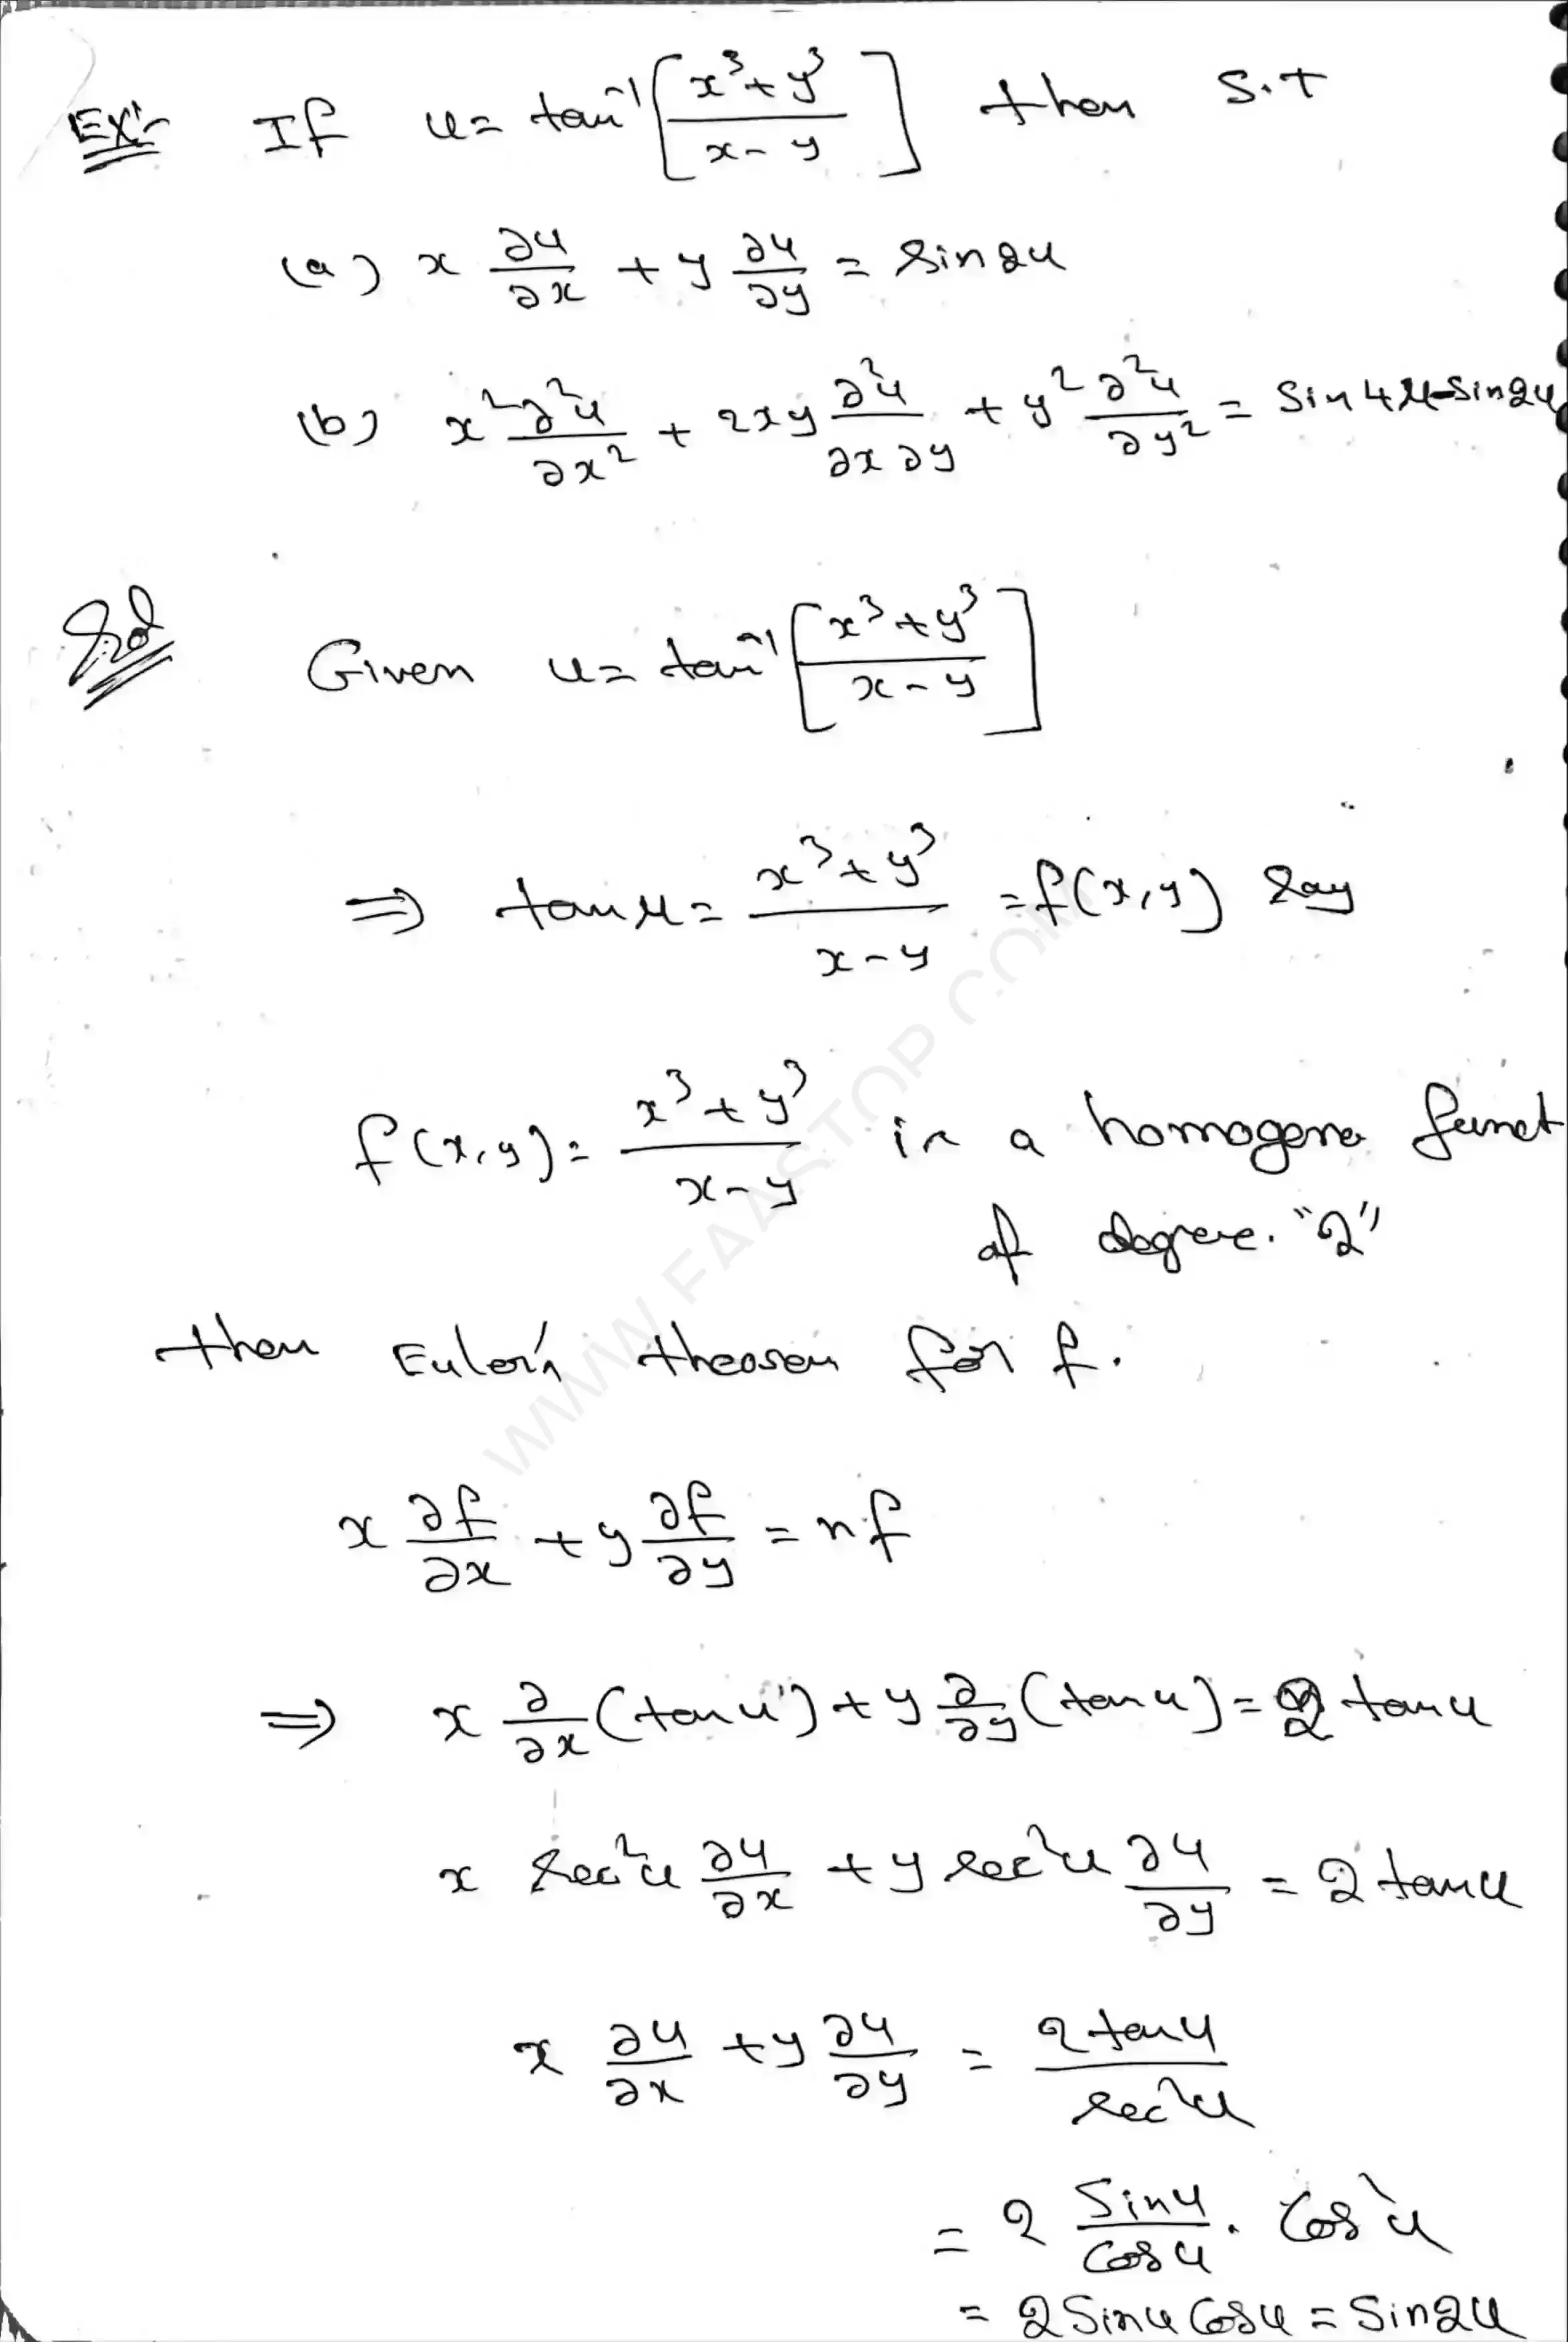 Ex:- If u = tan⁻¹[(x³+y³)/(x-y)] then S.T
(a) x ∂u/∂x + y ∂u/∂y = sin2u
(b) x² ∂²u/∂x² + 2xy ∂²u/∂x∂y + y² ∂²u/∂y² = Sin4u-Sin2u
Sol Given u = tan⁻¹[(x³+y³)/(x-y)]
⇒ tanu = (x³+y³)/(x-y) = f(x,y) say
f(x,y) = (x³+y³)/(x-y) is a homogene funct
of degree. "2"
then Euler's theorem for f.
x ∂f/∂x + y ∂f/∂y = nf
⇒ x ∂/∂x (tanu) + y ∂/∂y (tanu) = 2 tanu
x sec²u ∂u/∂x + y sec²u ∂u/∂y = 2 tanu
x ∂u/∂x + y ∂u/∂y = 2 tanu/sec²u
= 2 Sinu/Cosu . Cos²u
= 2 Sinu Cosu = Sin2u
WWW.FAASTOP.COM